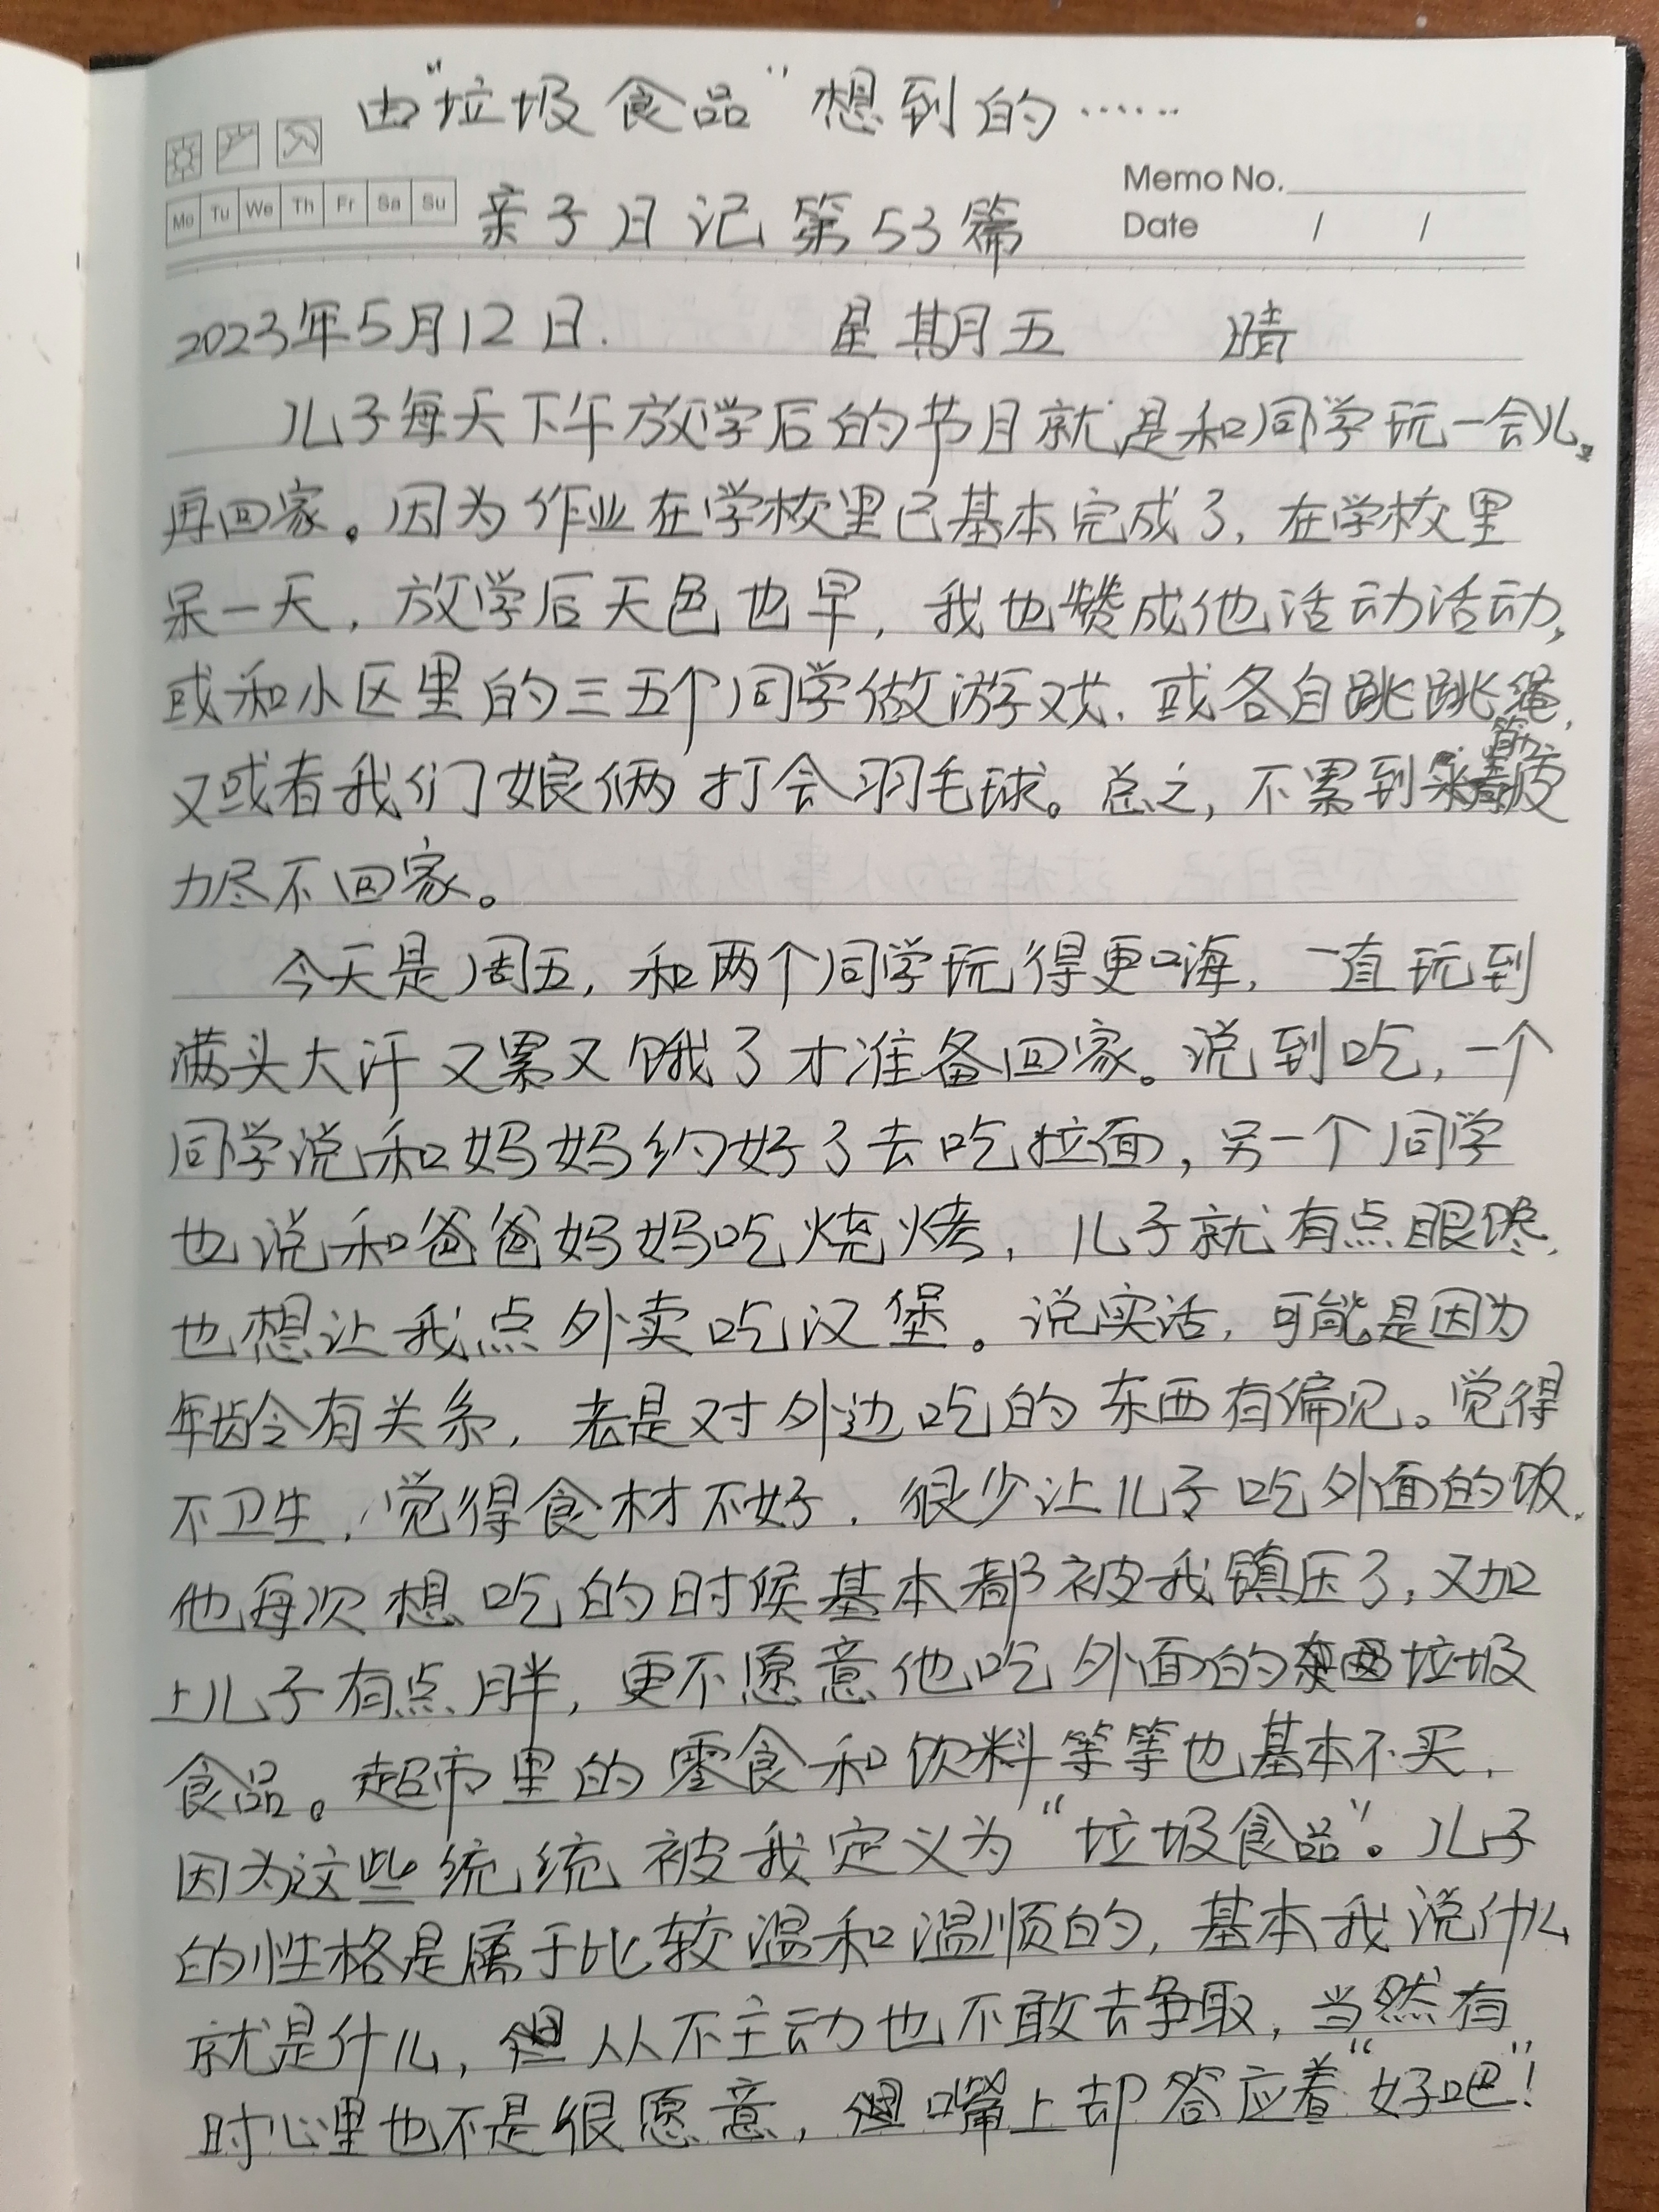 由“垃圾食品”想到的······
Memo No.
Mo Tu We Th Fr Sa Su
亲子日记第53篇
Date / /
2023年5月12日. 星期五 晴
儿子每天下午放学后的节目就是和同学玩一会儿,
再回家。因为作业在学校里已基本完成了,在学校里
呆一天,放学后天色也早,我也赞成他活动活动,
或和小区里的三五个同学做游戏,或各自跳跳绳,
又或者我们娘俩打会羽毛球。总之,不累到筋疲
力尽不回家。
今天是周五,和两个同学玩得更嗨,一直玩到
满头大汗又累又饿了才准备回家。说到吃,一个
同学说和妈妈约好了去吃拉面,另一个同学
也说和爸爸妈妈吃烧烤,儿子就有点眼馋,
也想让我点外卖吃汉堡。说实话,可能是因为
年龄有关系,老是对外边吃的东西有偏见。觉得
不卫生,觉得食材不好,很少让儿子吃外面的饭,
他每次想吃的时候基本都被我镇压了,又加
上儿子有点胖,更不愿意他吃外面的垃圾
食品。超市里的零食和饮料等等也基本不买,
因为这些统统被我定义为“垃圾食品”。儿子
的性格是属于比较温和温顺的,基本我说什么
就是什么,但从不主动也不敢去争取,当然有
时心里也不是很愿意,但嘴上却答应着“好吧”!